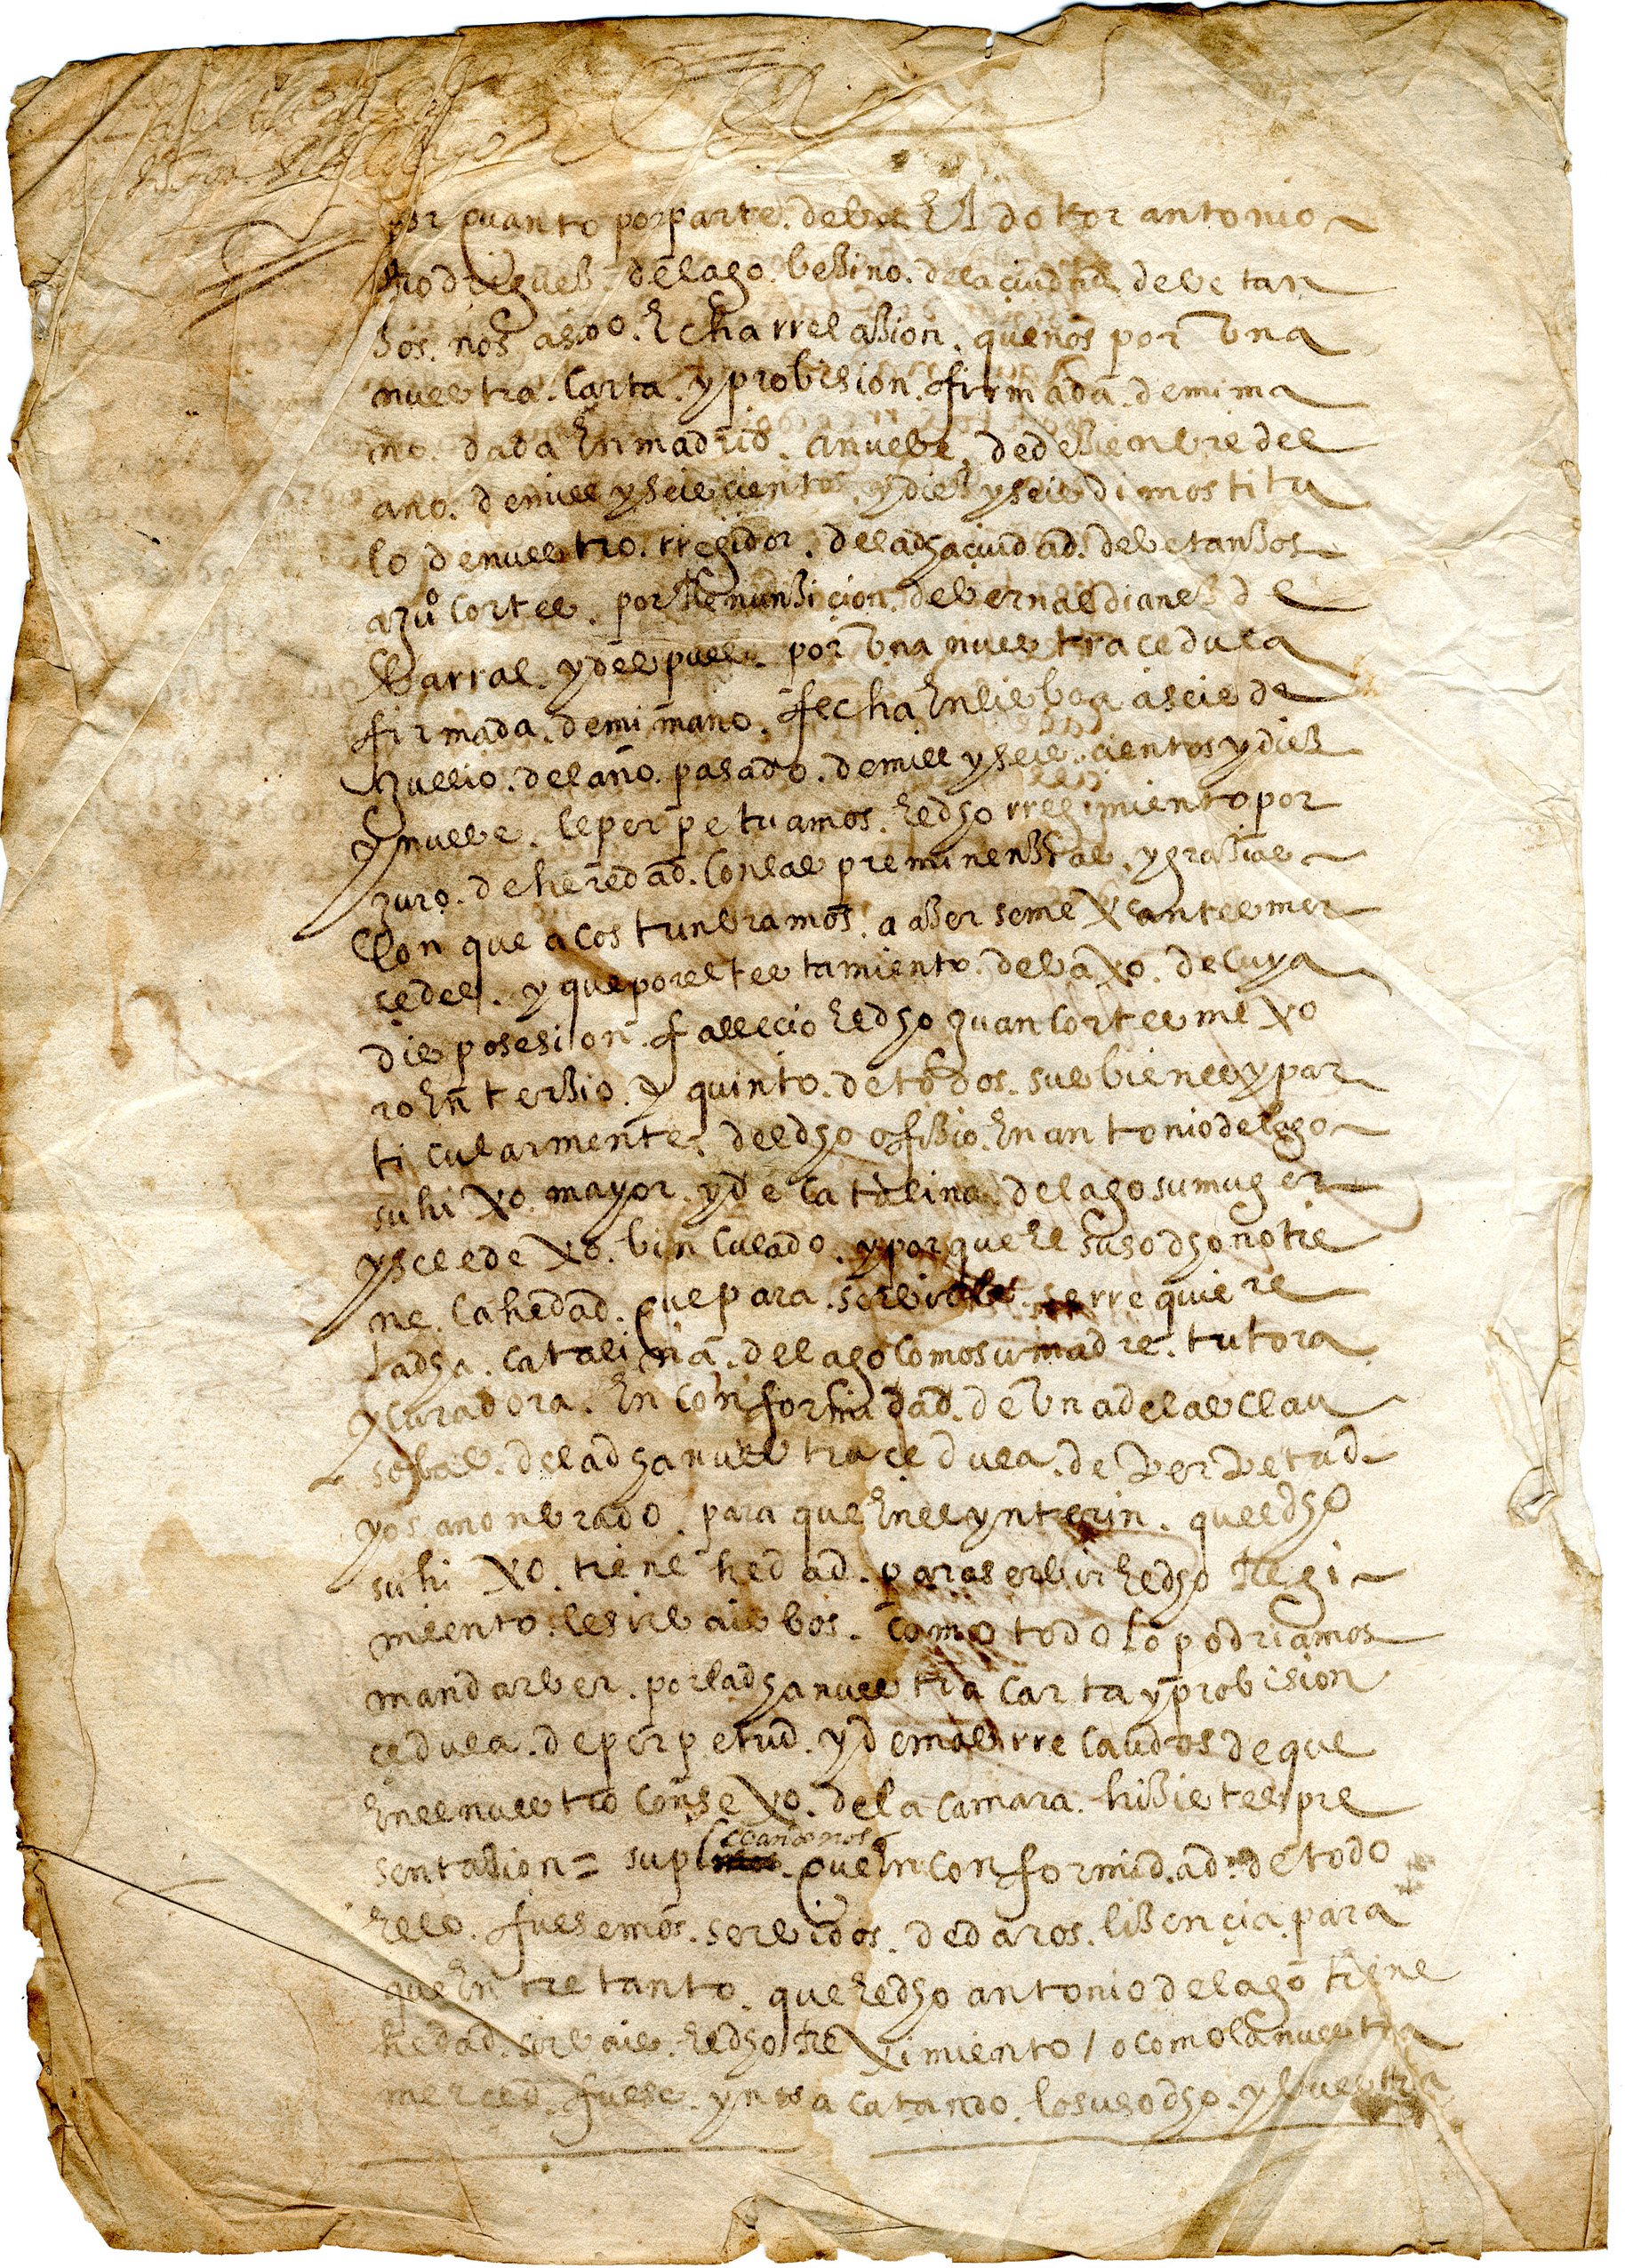 por quanto por parte. de bos El doctor antonio
Rodriguez. de lago. bezino. de la ciudad de betan
zos. nos a sido. Echa rrelazion. que nos por Una
nuestra. Carta. y probision. firmada. de mi ma
no. dada En madrid. a nuebe, de dezienbre del
año. de mill y seiscientos. y diez y seis dimos titu
lo de nuestro. rregidor. de la dha ciudad. de betanzos
a Juº Cortes. por Renunzicion. de bernal dianez de
Barral. y despues. por Una nuestra cedula
firmada. de mi mano. fecha En lisboa a seis de
Jullio. del año. pasado. de mill y seis. cientos y diez
y nuebe. le perpetuamos. El dho rregimiento por
juro. de heredad. Con las preminenzias. y grazias
Con que acostunbramos. a azer semexantes mer
cedes. y que por el testamiento. debaxo. de Cuya
disposesion. fallecio El dho Juan Cortes mexo
ro En terzio. y quinto. de todos. sus bienes y par
ticularmente. del dho ofizio. En antonio de lago
su hixo. mayor. y de Catalina. de lago su muger
y se le dexo. binculado. y porque El susodho no tie
ne. la hedad. que para. serbirle. se rrequiere
la dha. Catalina. de lago Como su madre. tutora
y Curadora. En Conformidad. de Una de las clau
solas. de la dha nuestra cedula. de perpetud
y os a nonbrado. para que En el ynterin. que el dho
su hixo. tiene hedad. para serbir El dho Regi
miento. le sirbais bos. Como todo lo podriamos
mandar ber. por la dha nuestra Carta y probision
cedula. de perpetud. y demas rrecaudos de que
En el nuestro Consexo. de la Camara. hizistes pre
sentazion = suplicandonos. que En Conformidad. de todo
Ello. fuesemos. serbidos. de daros. lizencia. para
que En tre tanto. que El dho antonio de lago tiene
hedad. sirbais. El dho Reximiento / o como la nuestra
merced. fuese. y nos acatando. lo susodho. y buestra